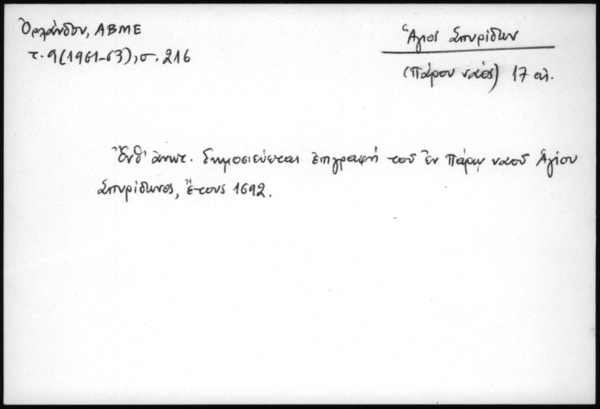 Ὀρλάνδου, ΑΒΜΕ
τ. 9 (1961-63), σ. 216
Ἅγιος Σπυρίδων
(Πάρου ναός) 17 αἰ.
Ἔνθ' ἀνωτ. δημοσιεύεται ἐπιγραφή τοῦ ἐν Πάρῳ ναοῦ Ἁγίου
Σπυρίδωνος, ἔτους 1692.